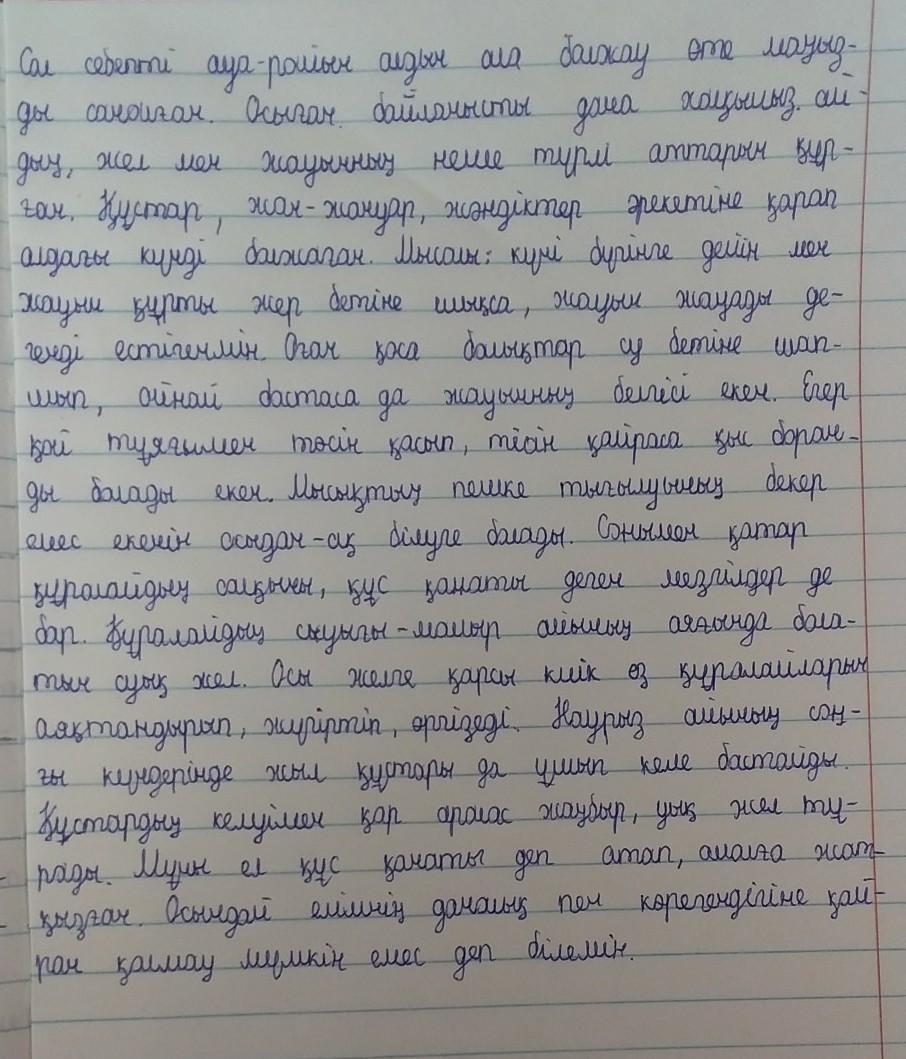 Сол себепті ауа-райын алдын ала болжау өте маңыз-
ды саналған. Осыған байланысты дана халқымыз ай-
дың, жел мен жауынның неше түрлі аттарын құр-
ған. Құстар, жан-жануар, жәндіктер әрекетіне қарап
алдағы күнді болжаған. Мысалы: күні бүгінге дейін мен
жауын құрты жер бетіне шықса, жауын жауады де-
генді естігенмін. Оған қоса балықтар су бетіне шап-
шып, ойнай бастаса да жауынның белгісі екен. Егер
қой тұяғымен төсін қасып, тісін қайраса қыс боран-
ды болады екен. Мысықтың пешке тығылуының бекер
емес екенін осыдан-ақ білуге болады. Сонымен қатар
құралайдың салқыны, құс қанаты деген мезгілдер де
бар. Құралайдың суығы-мамыр айының аяғында бола-
тын суық жел. Осы желге қарсы киік өз құралайларын
аяқтандырып, жүгіртіп, өргізеді. Наурыз айының соң-
ғы күндерінде жыл құстары да ұшып келе бастайды.
Құстардың келуімен қар аралас жаңбыр, уық жел тұ-
рады. Мұны ел құс қанаты деп атап, амалға жат-
қызған. Осындай елімнің даналық пен көрегендігіне қай-
ран қалмау мүмкін емес деп білемін.